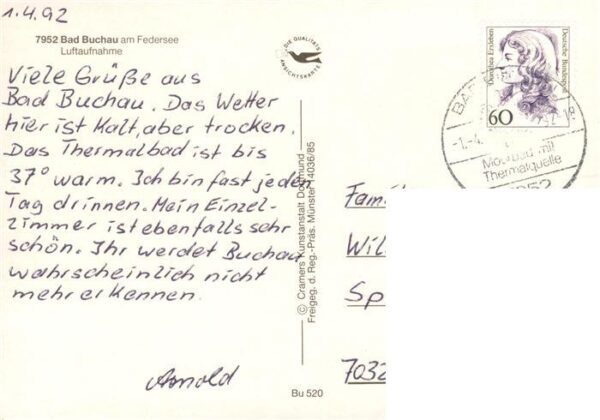 1.4.92
7952 Bad Buchau am Federsee
Luftaufnahme
DIE QUALITÄTS
ANSICHTSKARTE
Viele Grüße aus
Bad Buchau. Das Wetter
hier ist kalt, aber trocken.
Das Thermalbad ist bis
37° warm. Ich bin fast jeden
Tag drinnen. Mein Einzel-
zimmer ist ebenfalls sehr
schön. Ihr werdet Buchau
wahrscheinlich nicht
mehr erkennen.
Arnold
© Cramers Kunstanstalt Dortmund
Freigeg. d. Reg.-Präs. Münster 14036/85
Bu 520
Dorothea Erxleben
Deutsche Bundespost
60
BAD
1.-4.
Moorbad mit
Thermalquelle
7952
Fam
Wil
Sp
7032